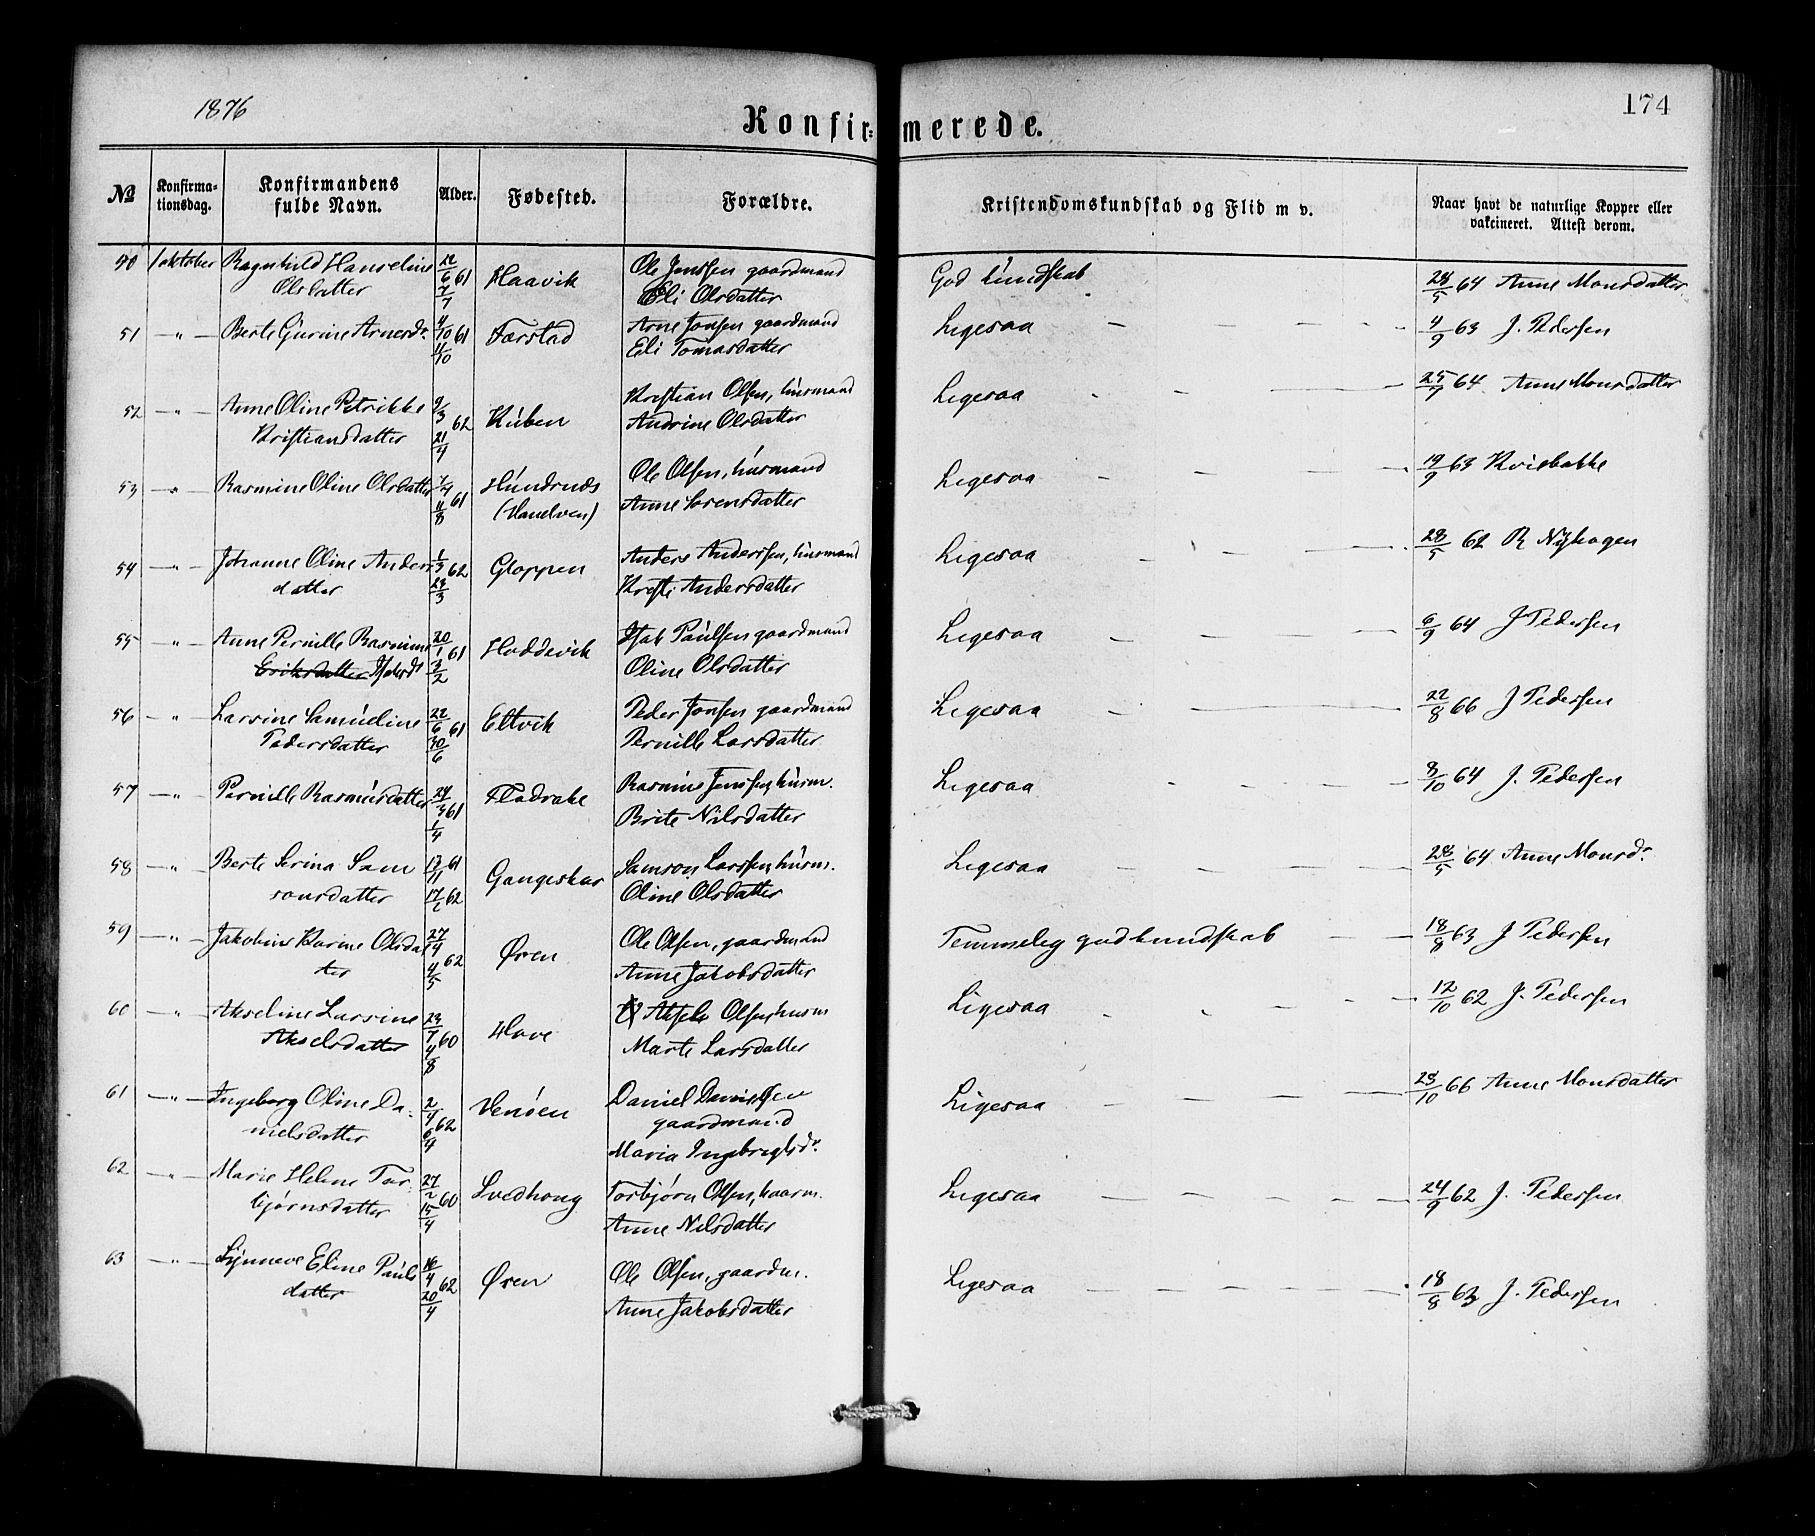 1876
174
Konfirmerede.
№ Konfirmationsdag. Konfirmandens fulde Navn. Alder. Fødested. Forældre. Kristendomskundskab og Flid m v. Naar havt de naturlige Kopper eller vakcineret. Attest derom.
50 1 oktober Ragnhild Hanseline 22/6 61 Haavik Ole Jenssen gaardmand God kundskab 28/5 64 Anne Monsdatter
Olsdatter 7/7 Eli Olsdatter
51 -"- Berte Gjurine Arnesdr. 4/10 61 Færstad Arne Jonsen gaardmand Ligesaa 4/9 63 J. Pedersen
11/10 Eli Tomasdatter
52 -"- Anne Oline Petrikke 9/3 62 Kuben Kristian Olsen, husmand Ligesaa 25/7 64 Anne Monsdatter
Kristiansdatter 21/4 Andrine Olsdatter
53 -"- Rasmine Oline Olsdatter 61 Hundsnæs Ole Olsen, husmand Ligesaa 19/9 63 Kvisbakke
11/8 Anne Sorensdatter
54 -"- Johanne Oline Anders 1/3 62 Gloppen Anders Anderssen, husmand Ligesaa 28/5 62 R Nyhagen
datter 23/3 Kristi Andersdatter
55 -"- Anne Pernille Rasmine 20/1 61 Hoddevik Isak Paulsen gaardmand Ligesaa 6/9 64 J Pedersen
Eriksdatter 3/2 Oline Olsdatter
56 -"- Larsine Samueline 22/6 61 Eltvik Peder Jonsen gaardmand Ligesaa 22/8 66 J Pedersen
Pedersdatter 30/6 Pernille Larsdatter
57 -"- Pernille Rasmusdatter 24/3 61 Fladrake Rasmus Jenssen husm. Ligesaa 8/10 64 J. Pedersen
1/4 Brite Nilsdatter
58 -"- Berte Serina Sam 13/11 61 Gangeskar Samson Larssen husm. Ligesaa 28/5 64 Anne Monsdr.
sonsdatter 62 Oline Olsdatter
59 -"- Jakobine Karine Olsdat 27/4 62 Øren Ole Olsen, gaardmand Temmelig god kundskab 18/8 63 J Pedersen
ter 4/5 Anne Jakobsdatter
60 -"- Akseline Larsine 23/7 60 Hove Aksel Olsen husm Ligesaa 12/10 62 J. Pedersen
Akselsdatter 4/8 Marte Larsdatter
61 -"- Ingeborg Oline Da- 2/4 62 Venøen Daniel Danielsen Ligesaa 23/10 66 Anne Monsdatter
nielsdatter gaardmand
Maria Ingebregtsdr.
62 -"- Marie Helene Tor 27/2 60 Torbjørn Olsen, Ligesaa 24/9 62 J. Pedersen
bjørnsdatter 15/4 Anne Nilsdatter
63 -"- Synneve Eline Pauls 16/4 62 Øren Ole Olsen, gaardm. Ligesaa 18/8 63 J. Pedersen
datter 20/4 Anne Jakobsdatter